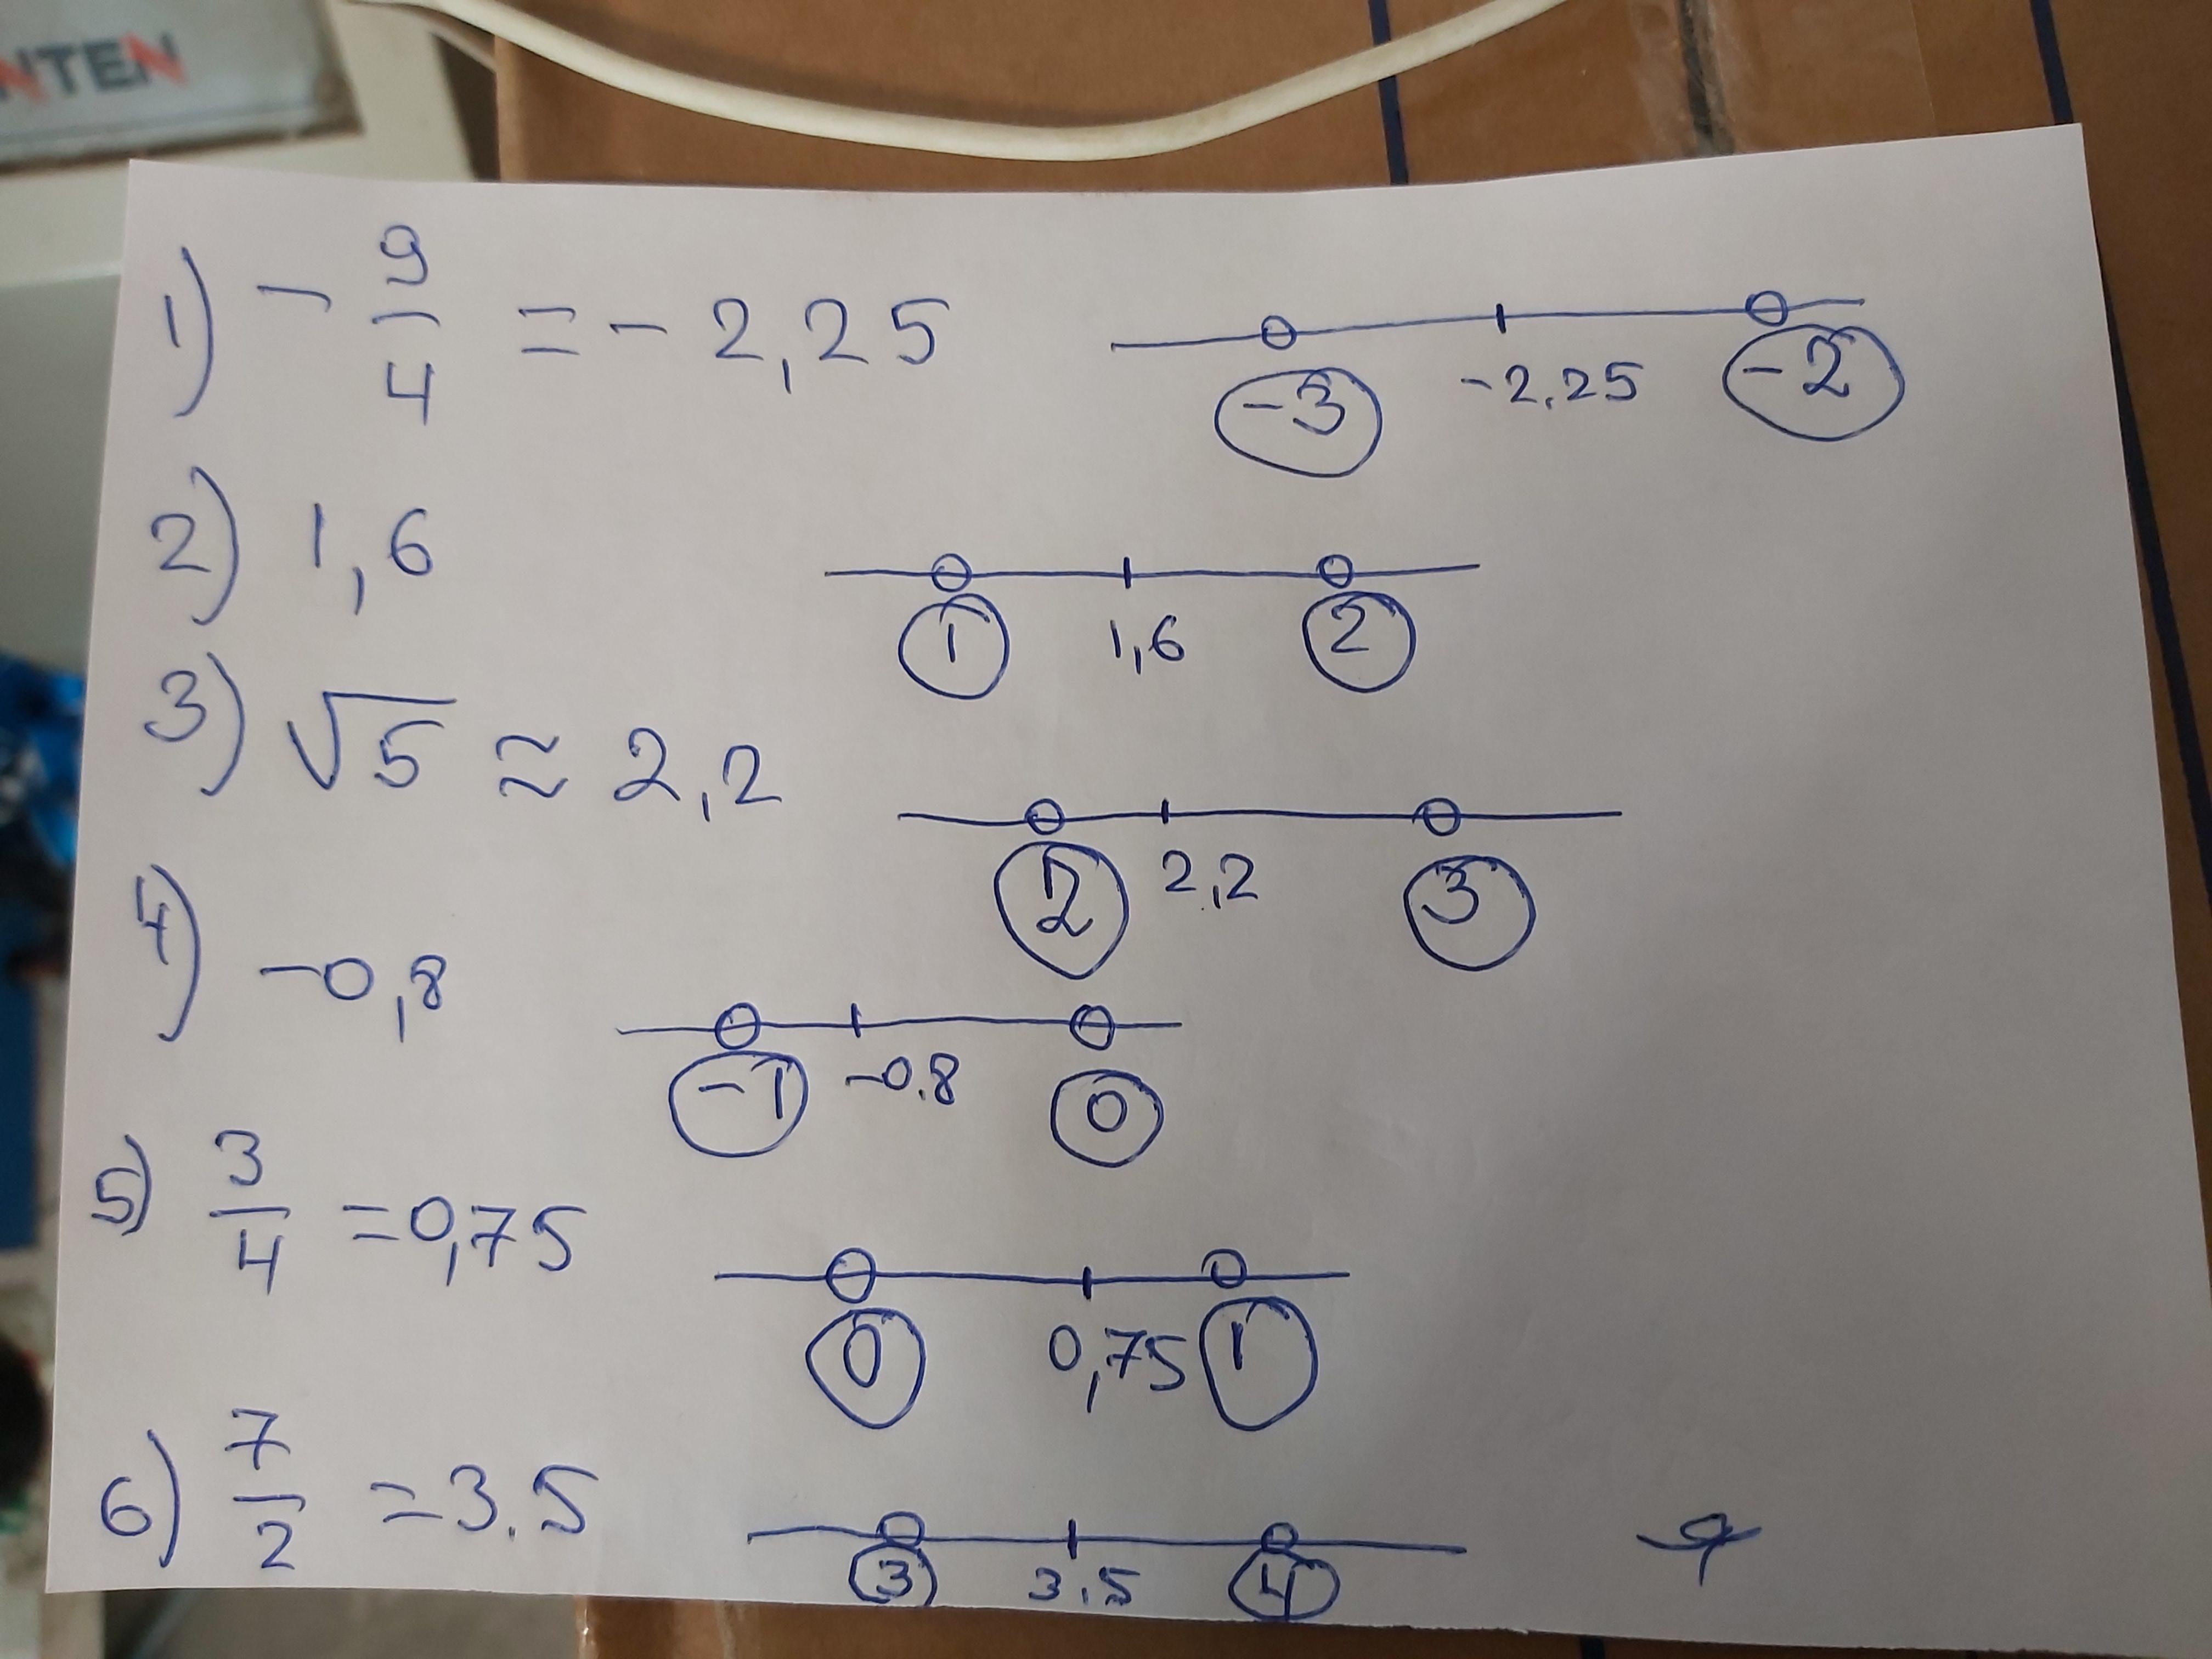 NTEN
1) - 9/4 = - 2,25
-3 -2.25 -2
2) 1,6
1 1,6 2
3) √5 ≈ 2,2
2 2,2 3
4) -0,8
-1 -0.8 0
5) 3/4 = 0,75
0 0,75 1
6) 7/2 = 3.5
3 3.5 4